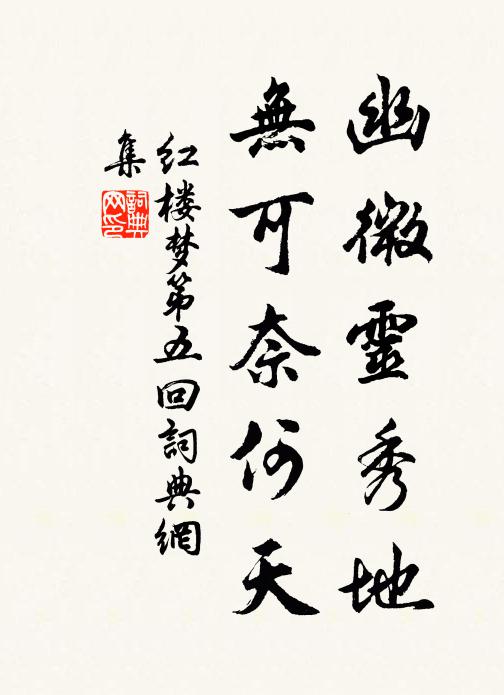 幽微靈秀地
無可奈何天
红楼梦第五回詞典網
集
詞典
网印